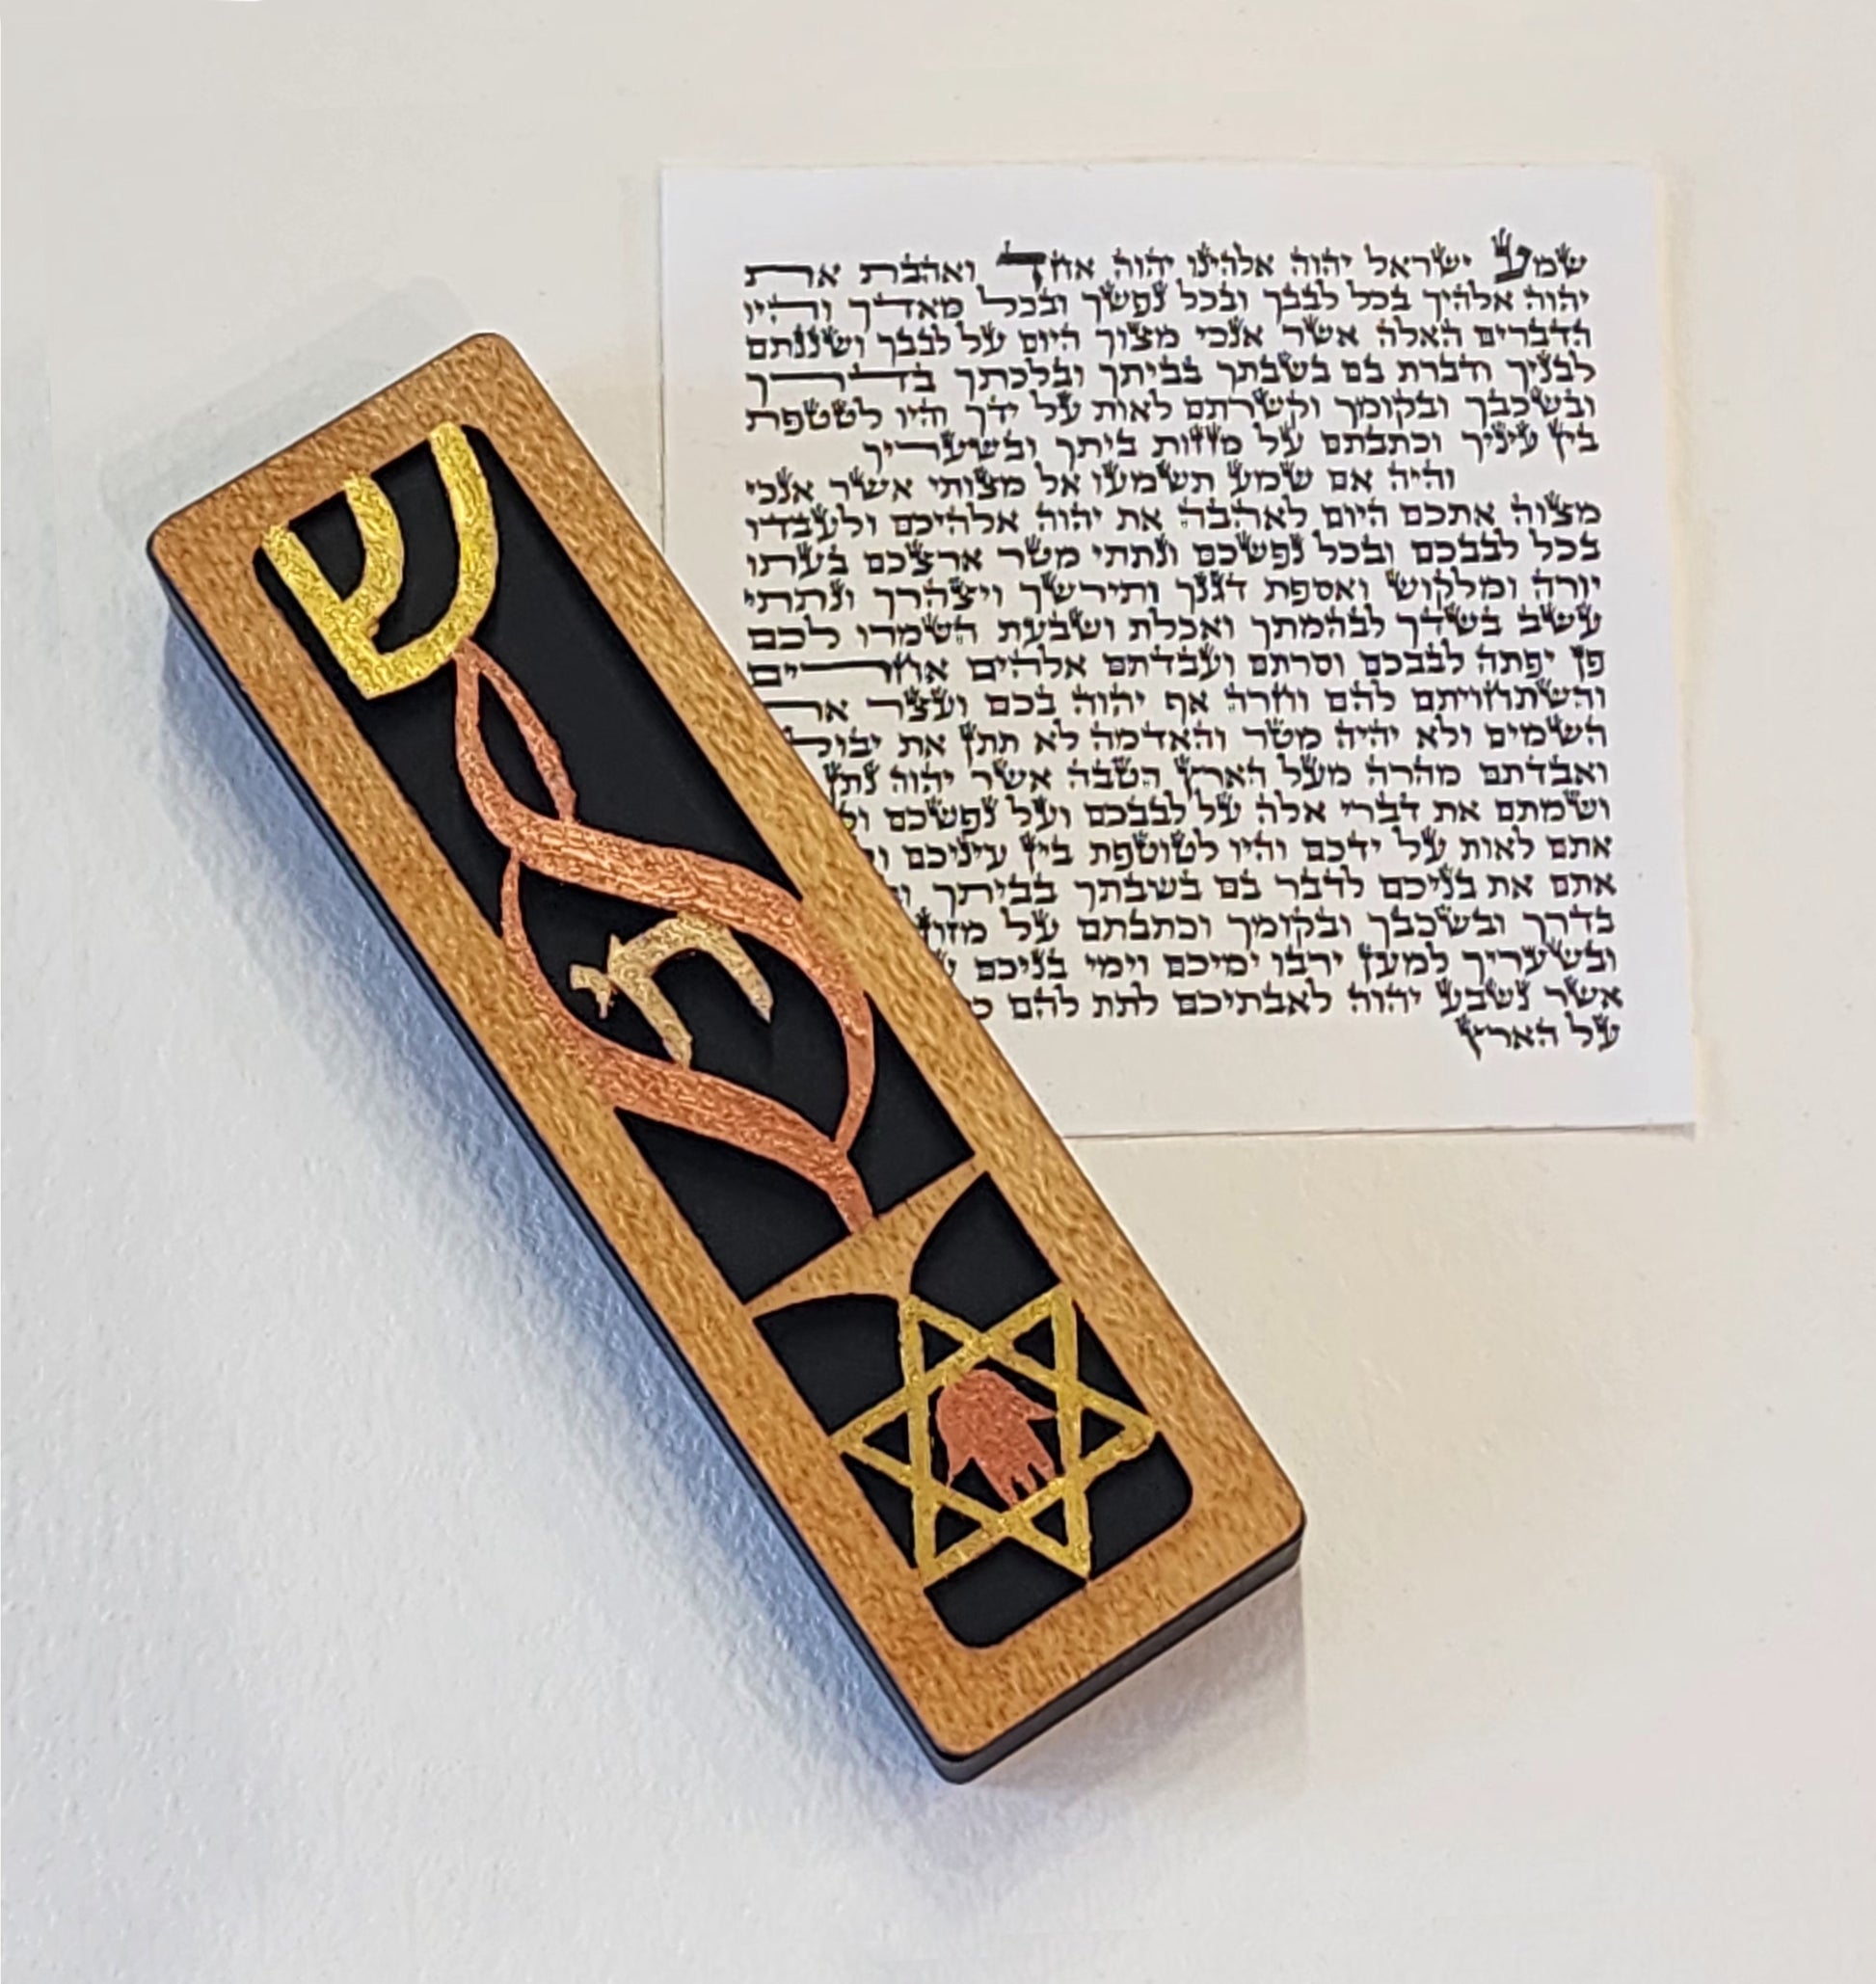 ש
חי
שמע ישראל יהוה אלהינו יהוה אחד ואהבת את
יהוה אלהיך בכל לבבך ובכל נפשך ובכל מאדך והיו
הדברים האלה אשר אנכי מצוך היום על לבבך ושננתם
לבניך ודברת בם בשבתך בביתך ובלכתך בדרך
ובשכבך ובקומך וקשרתם לאות על ידך והיו לטטפת
בין עיניך וכתבתם על מזזות ביתך ובשעריך
והיה אם שמע תשמעו אל מצותי אשר אנכי
מצוה אתכם היום לאהבה את יהוה אלהיכם ולעבדו
בכל לבבכם ובכל נפשכם ונתתי מטר ארצכם בעתו
יורה ומלקוש ואספת דגנך ותירשך ויצהרך ונתתי
עשב בשדך לבהמתך ואכלת ושבעת השמרו לכם
פן יפתה לבבכם וסרתם ועבדתם אלהים אחרים
והשתחויתם להם וחרה אף יהוה בכם ועצר
השמים ולא יהיה מטר והאדמה לא תתן את
ואבדתם מהרה מעל הארץ הטבה אשר יהוה נתן
ושמתם את דברי אלה על לבבכם ועל נפשכם
אתם לאות על ידכם והיו לטוטפת בין עיניכם
אתם את בניכם לדבר בם בשבתך בביתך
בדרך ובשכבך ובקומך וכתבתם על
ובשעריך למען ירבו ימיכם וימי בניכם
אשר נשבע יהוה לאבתיכם לתת להם
על הארץ